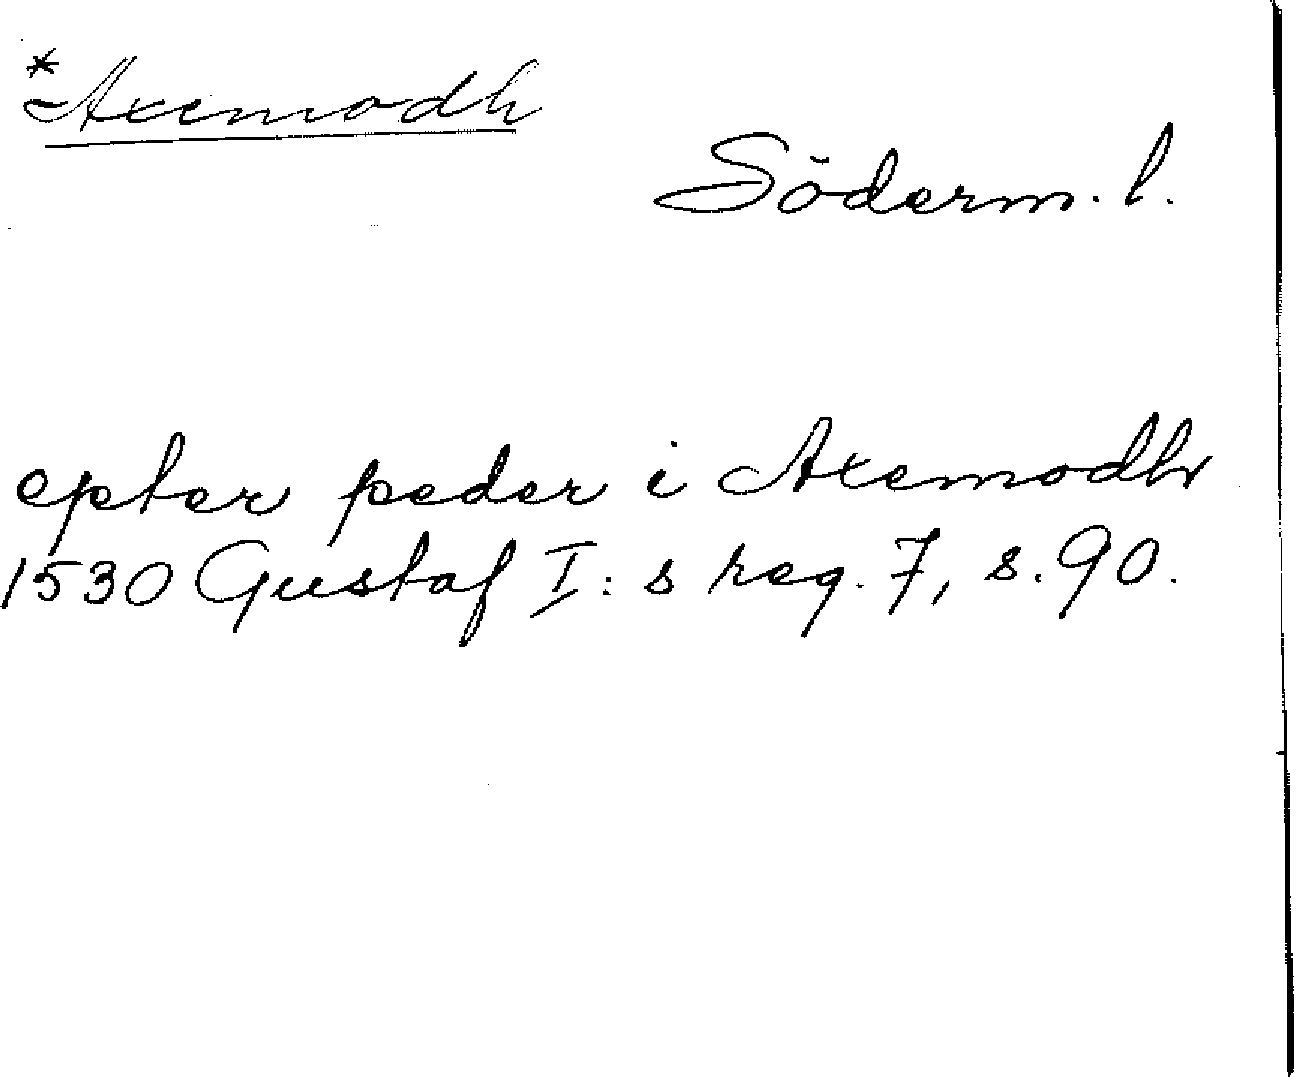 *Axemodh
Söderm. l.
epter peder i Axemodh
1530 Gustaf I:s reg. 7, s. 90.